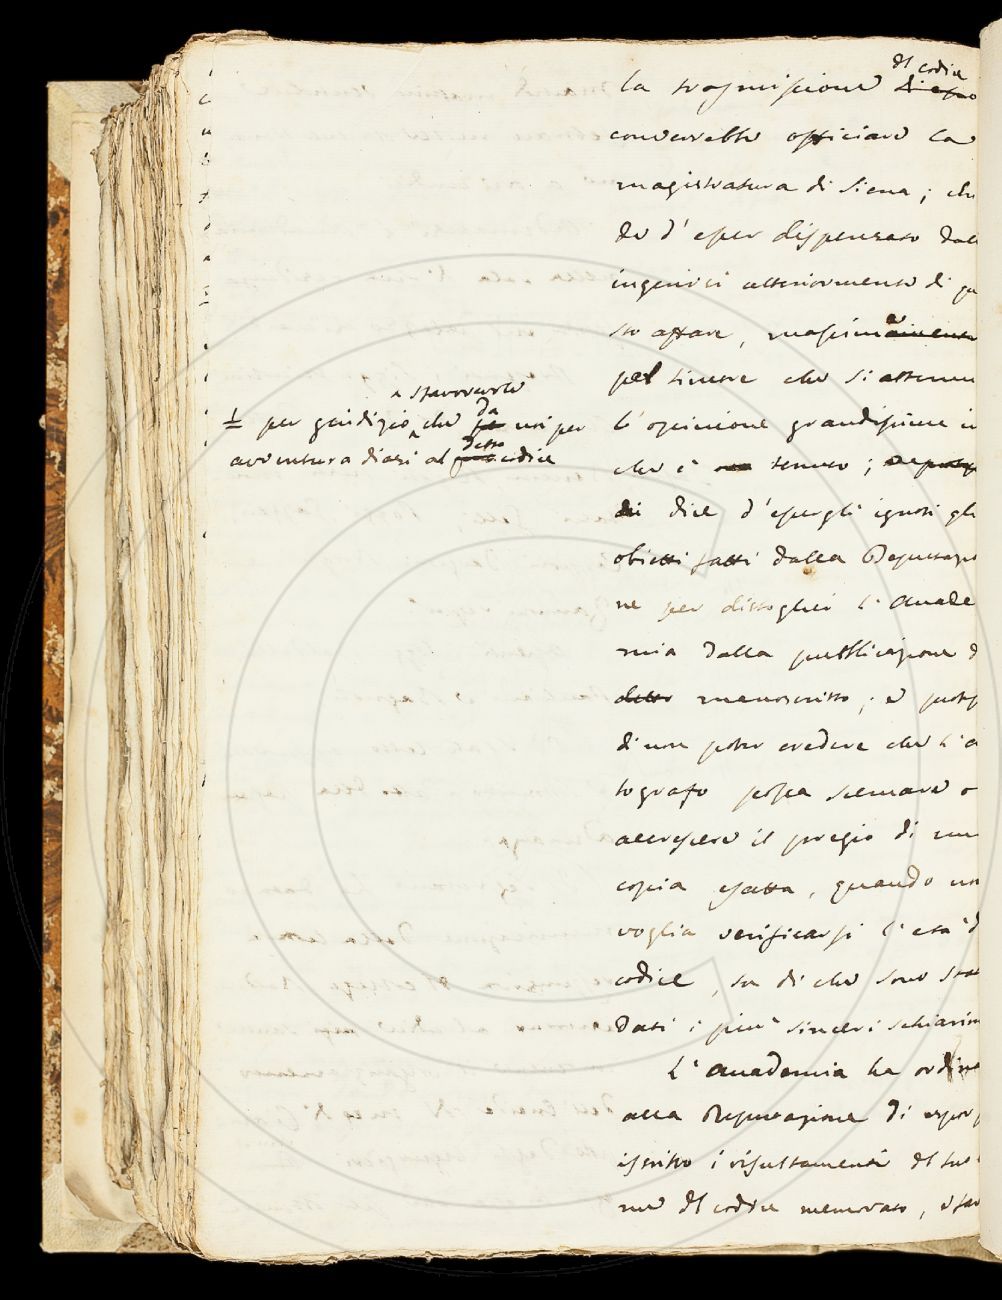 del codice
la trasmissione di esso
converrebbe officiare la
magistratura di Siena; chie
de d'esser dispensato dall
ingerirsi ulteriormente di que
sto affare, massimamente
pel timore che si attenui
l'opinione grandissima in
che è tenuto;
dice d'essergli ignoti gli
obietti fatti dalla Deputazio
ne per distoglier l'Accade
mia dalla pubblicazione d
detto manoscritto; e protes
di non poter credere che l'a
tografo possa scemare o
accrescere il pregio di una
copia esatta, quando non
voglia verificarsi l'età d
codice, su di che sono stat
dati i più sinceri schiarim
L'Accademia ha ordina
alla Deputazione di espor
iscritto i risultamenti del su
me del codice memorato, e fav
sfavorevole
per giudizio che da noi per
avventura diasi al detto codice